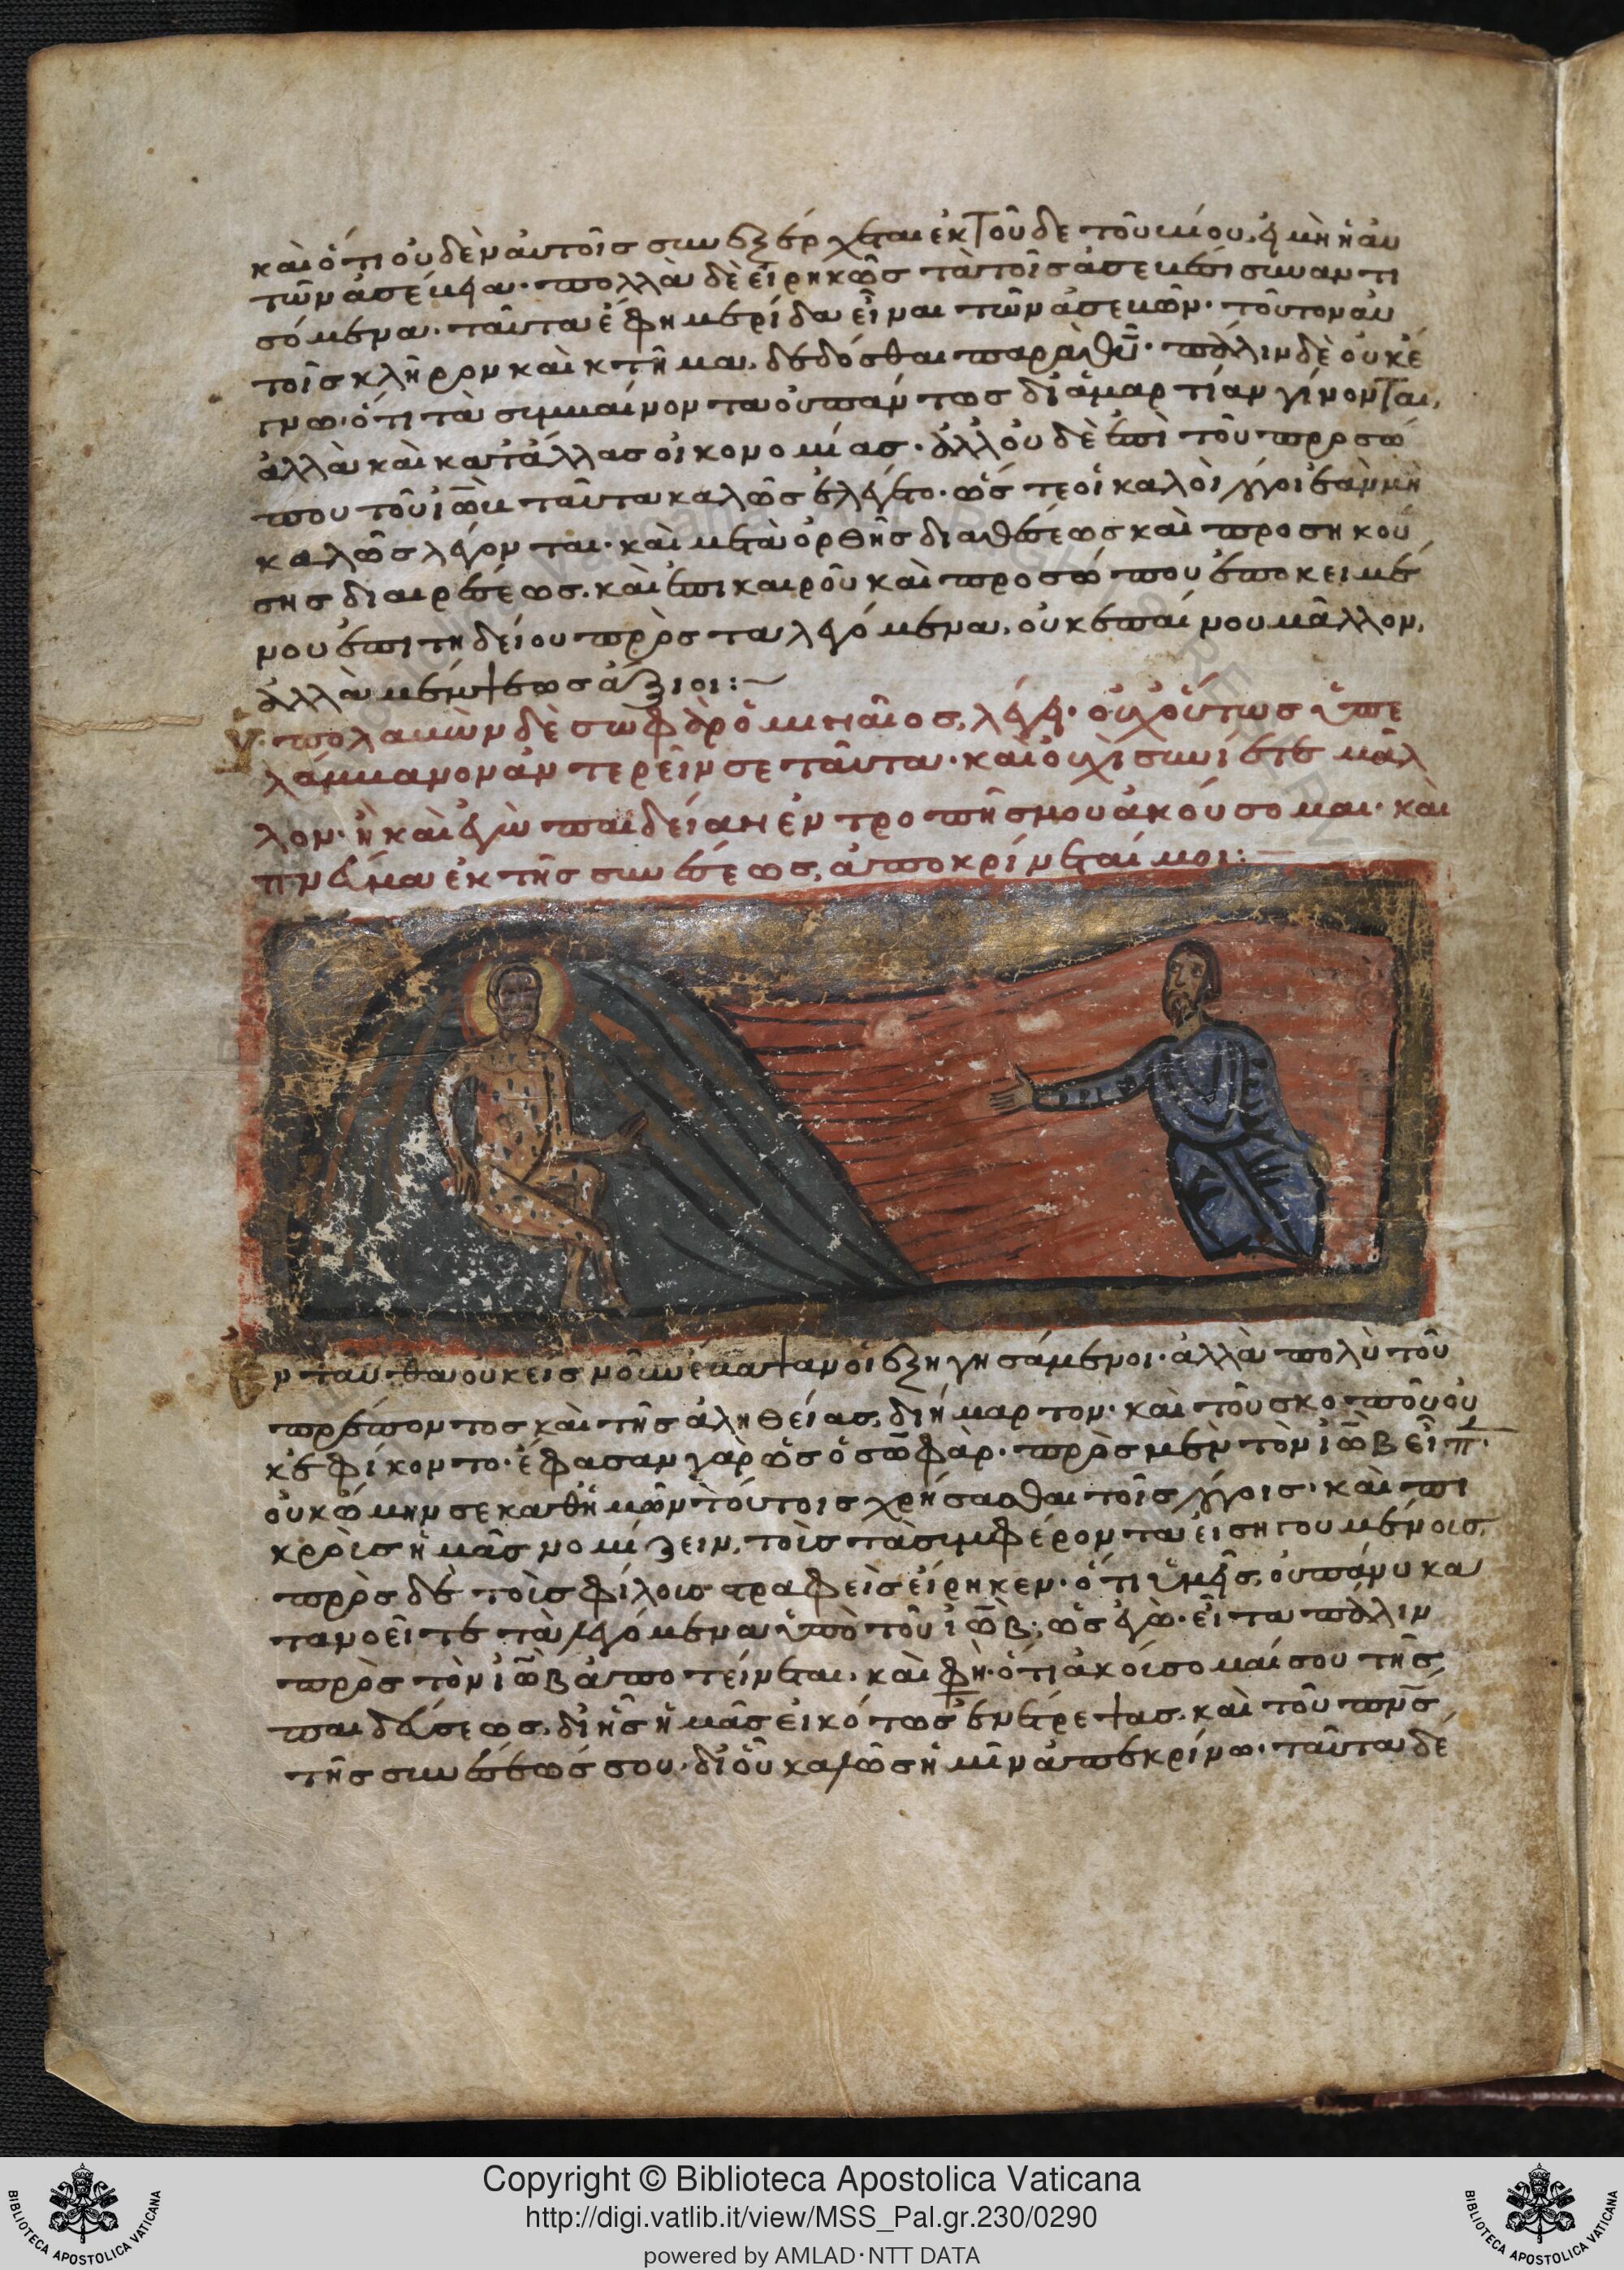 καὶ ὅτι οὐδὲν αὐτοῖς συνεξέρχεται ἐκ τοῦδε τοῦ βίου, εἰ μὴ ἡ αὐ
τῶν ἀσέβεια· πολλὰ δὲ εἰρηκὼς τὰ τοῖς ἀσεβέσι συναντη
σόμενα· ταῦτα ἔφη μερίδα εἶναι τῶν ἀσεβῶν· τοῦτον αὐ
τοῖς κλῆρον καὶ κτῆμα, δεδόσθαι παρὰ θῡ· πάλιν δὲ οὐκ ἔ
γνω· ὅτι τὰ συμβαίνοντα οὐ πάντως δι' ἁμαρτίαν γίνονται,
ἀλλὰ καὶ κατ' ἄλλας οἰκονομίας· ἀλλ' οὐδὲ ἐπὶ τοῦ προσώ
που τοῦ ἰὼβ ταῦτα καλῶς ἐλέγετο· ὥς τε οἱ καλοὶ λόγοι ἐὰν μὴ
καλῶς λέγονται· καὶ μετὰ ὀρθῆς διαθέσεως καὶ προσηκού
σης διαιρέσεως. καὶ ἐπὶ καιροῦ καὶ προσώπου ὑποκειμέ
νου ἐπιτηδείου πρὸς τὰ λεγόμενα, οὐκ ἐπαίνου μᾶλλον,
ἀλλὰ μέμψεως ἄξιοι:~
Ὑπολαβὼν δὲ σωφὰρ ὁ μιναῖος, λέγει· οὐχ οὕτως ὑπε
λάμβανον ἀντερεῖν σε ταῦτα· καὶ οὐχὶ συνίετε μᾶλ
λον· ἢ καὶ ἐγὼ παιδείαν ἐντροπῆς μου ἀκούσομαι· καὶ
πνεῦμα ἐκ τῆς συνέσεως, ἀποκρίνεταί μοι:—
Ἐνταῦθα οὐκ εἰς νοῦν ἔβαψαν οἱ ἐξηγησάμενοι· ἀλλὰ πολὺ τοῦ
πρέποντος καὶ τῆς ἀληθείας, διήμαρτον· καὶ τοῦ σκοποῦ οὐ
κ ἐφίκοντο· ἔφασαν γὰρ ὡς ὁ σωφὰρ· πρὸς μὲν τὸν ἰὼβ εἶπ·
οὐκ ᾤμην σε καθ' ἡμῶν τούτοις χρήσασθαι τοῖς λόγοις· καὶ πι
κροῖς ἡμᾶς νομίζειν, τοῖς τὰ συμφέροντα εἰσηγουμένοις,
πρὸς δὲ τοῖς φίλοις τραφεὶς εἴρηκεν· ὅτι ὑμεῖς, οὐ πάνυ κα
τανοεῖτε τὰ λεγόμενα ὑπὸ τοῦ ἰὼβ· ὡς ἐγώ· εἶτα πάλιν
πρὸς τὸν ἰὼβ ἀποτείνεται, καὶ φη· ὅτι ἀκούσομαί σου τῆς
παιδεύσεως, δι' ἧς ἡμᾶς εἰκότως ἐνέτρεψας, καὶ τοῦ πνς
τῆς συνέσεώς σου· δι' οὗ καλῶς ἡμῖν ἀπεκρίνω· ταῦτα δὲ
Copyright © Biblioteca Apostolica Vaticana
http://digi.vatlib.it/view/MSS_Pal.gr.230/0290
powered by AMLAD·NTT DATA
BIBLIOTECA APOSTOLICA VATICANA
BIBLIOTECA APOSTOLICA VATICANA